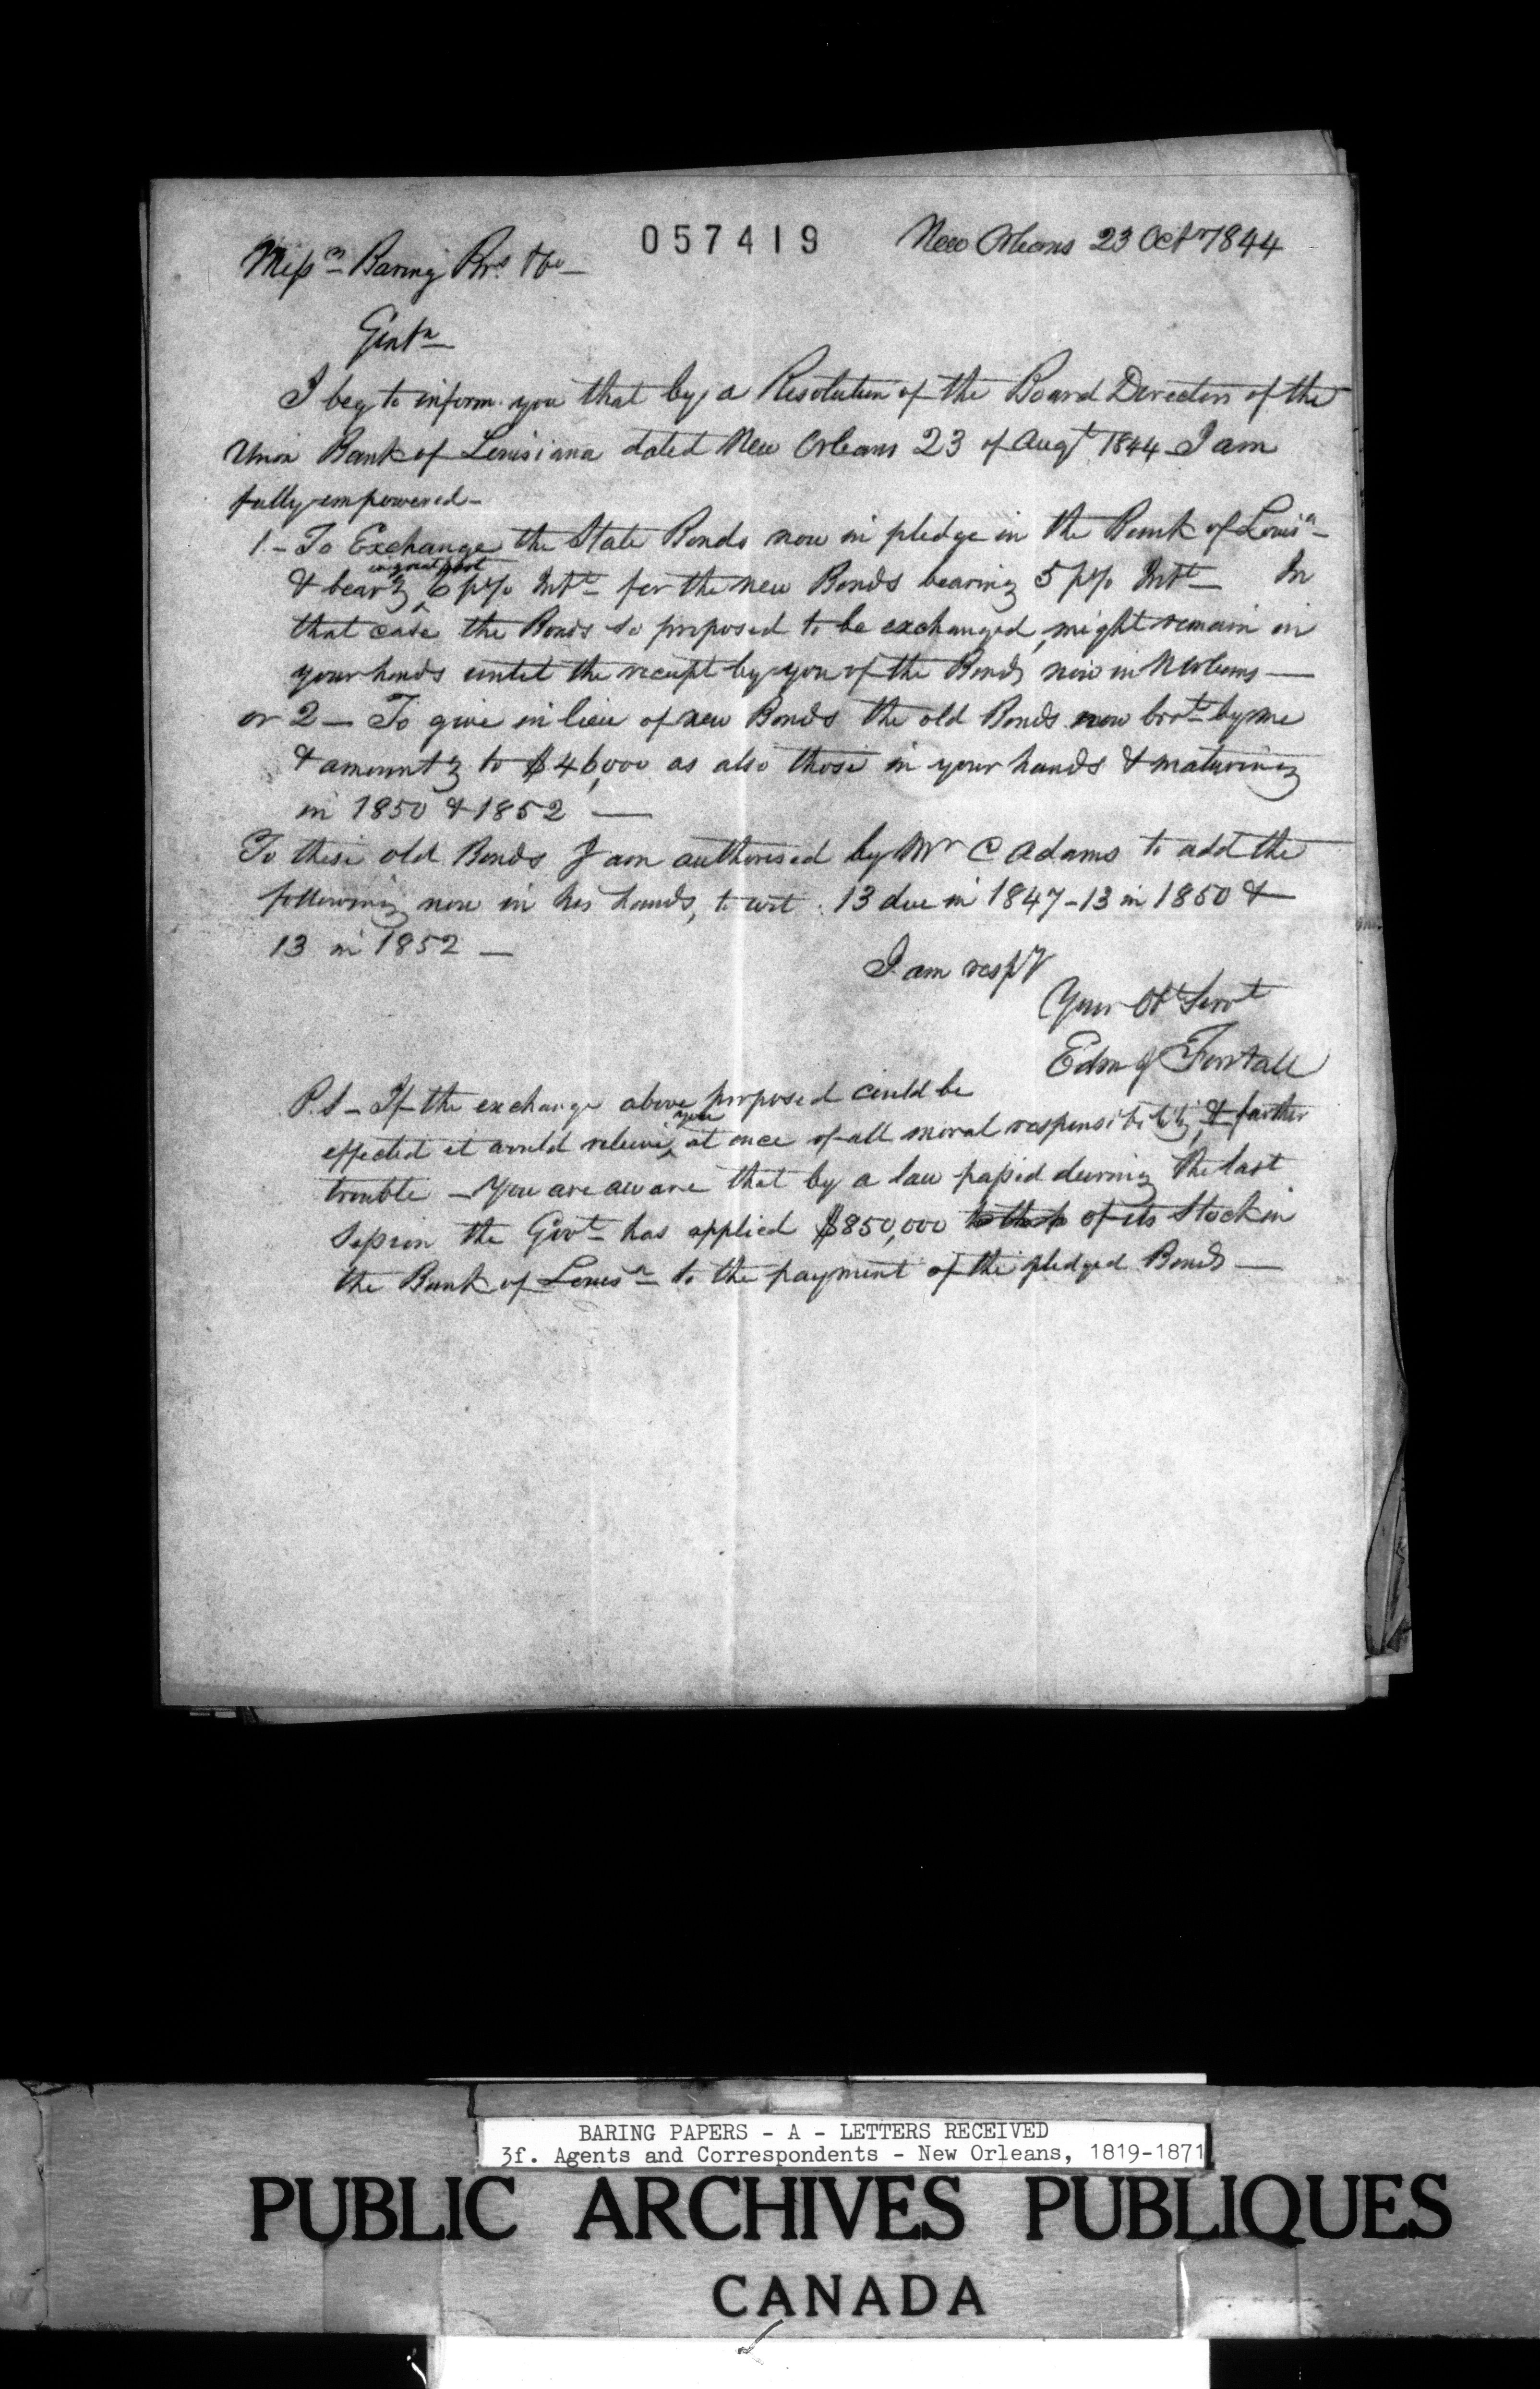 057419
New Orleans 23 Octr 1844
Messrs Baring Brs & Co
Gentn
I beg to inform you that by a Resolution of the Board Directors of the
Union Bank of Louisiana dated New Orleans 23 of Augt 1844 I am
fully empowered -
1. - To Exchange the State Bonds now in pledge in the Bank of Louisa -
& bearg in great part 6 p% Intt for the new Bonds bearing 5 p% Intt - In
that case the Bonds so proposed to be exchanged, might remain in
your hands until the receipt by you of the Bonds now in N Orleans —
or 2 - To give in lieu of new Bonds the old Bonds now brot by me
& amountg to $46,000 as also those in your hands & maturing
in 1850 & 1852 —
To these old Bonds I am authorised by Mr C Adams to add the
following now in his hands, to wit: 13 due in 1847 - 13 in 1850 &
13 in 1852 -
I am respy
Your Ot Servt
Edm J Forstall
P.S - If the exchange above proposed could be
effected it would relieve you at once of all moral responsibility, & further
trouble - You are aware that by a law passed during the last
Session the Govt has applied $850,000 of its Stock in
the Bank of Louisa - to the payment of the pledged Bonds —
BARING PAPERS - A - LETTERS RECEIVED
3f. Agents and Correspondents - New Orleans, 1819-1871
PUBLIC ARCHIVES PUBLIQUES
CANADA